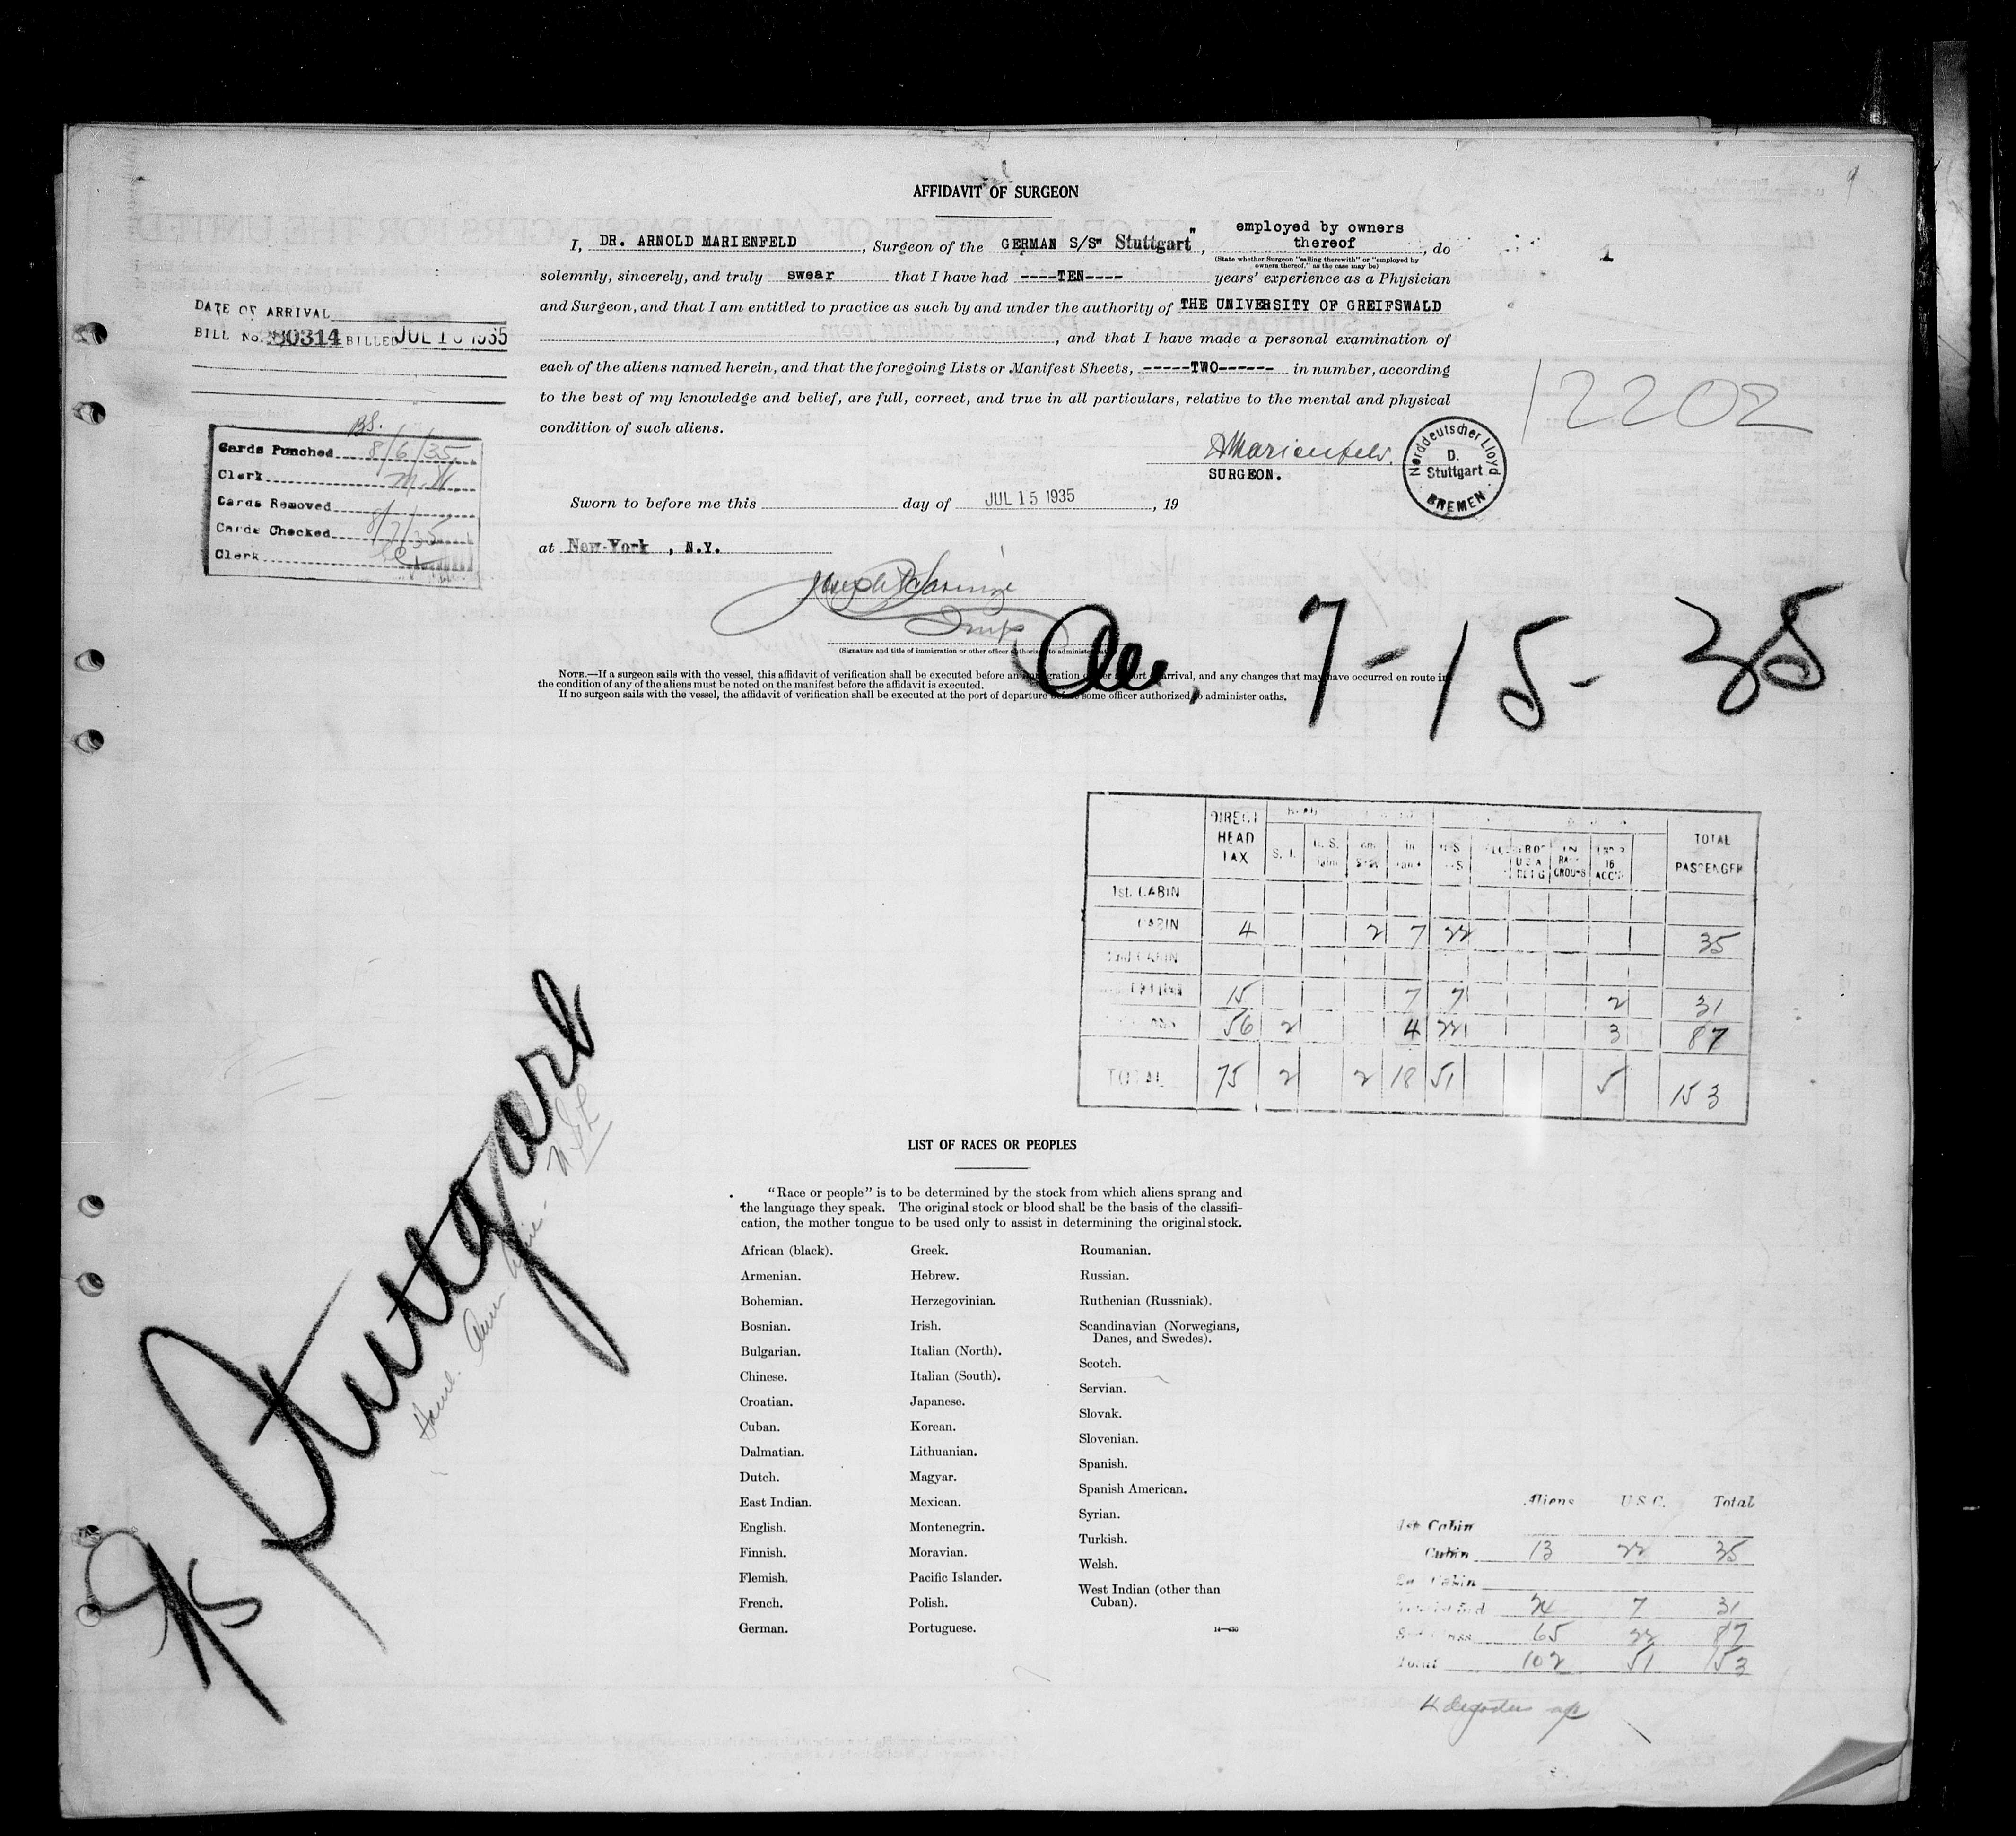 9
AFFIDAVIT OF SURGEON
I, DR. ARNOLD MARIENFELD, Surgeon of the GERMAN S/S" Stuttgart", employed by owners thereof, do
(State whether Surgeon "sailing therewith" or "employed by owners thereof," as the case may be)
1
solemnly, sincerely, and truly swear that I have had ----TEN---- years' experience as a Physician
and Surgeon, and that I am entitled to practice as such by and under the authority of THE UNIVERSITY OF GREIFSWALD
, and that I have made a personal examination of
each of the aliens named herein, and that the foregoing Lists or Manifest Sheets, -----TWO------ in number, according
to the best of my knowledge and belief, are full, correct, and true in all particulars, relative to the mental and physical
condition of such aliens.
DATE OF ARRIVAL
BILL No. 280314 BILLED JUL 16 1935
B.S.
Cards Punched 8/6/35
Clerk M.W.
Cards Removed
Cards Checked 8/7/35
Clerk
12202
AMarienfeld.
SURGEON.
Norddeutscher Lloyd
D.
Stuttgart
BREMEN
Sworn to before me this day of JUL 15 1935, 19
at New-York, N.Y.
Insp
(Signature and title of immigration or other officer authorized to administer
7-15-35
NOTE.—If a surgeon sails with the vessel, this affidavit of verification shall be executed before an immigration arrival, and any changes that may have occurred en route in
the condition of any of the aliens must be noted on the manifest before the affidavit is executed.
If no surgeon sails with the vessel, the affidavit of verification shall be executed at the port of departure before some officer authorized to administer oaths.
DIRECT HEAD TAX S. I. U.S. in U.S. U.S.A. IN 16 ACC'D TOTAL PASSENGER
1st. CABIN
CABIN 4 2 7 22 35
2nd CABIN
15 7 7 2 31
56 2 4 22 3 87
TOTAL 75 2 2 18 51 5 153
S/S Stuttgart
NGL
LIST OF RACES OR PEOPLES
"Race or people" is to be determined by the stock from which aliens sprang and
the language they speak. The original stock or blood shall be the basis of the classifi-
cation, the mother tongue to be used only to assist in determining the original stock.
African (black).
Armenian.
Bohemian.
Bosnian.
Bulgarian.
Chinese.
Croatian.
Cuban.
Dalmatian.
Dutch.
East Indian.
English.
Finnish.
Flemish.
French.
German.
Greek.
Hebrew.
Herzegovinian.
Irish.
Italian (North).
Italian (South).
Japanese.
Korean.
Lithuanian.
Magyar.
Mexican.
Montenegrin.
Moravian.
Pacific Islander.
Polish.
Portuguese.
Roumanian.
Russian.
Ruthenian (Russniak).
Scandinavian (Norwegians,
Danes, and Swedes).
Scotch.
Servian.
Slovak.
Slovenian.
Spanish.
Spanish American.
Syrian.
Turkish.
Welsh.
West Indian (other than
Cuban).
Aliens U.S.C. Total
1st Cabin
Cabin 13 22 35
2nd Cabin
24 7 31
65 22 87
Total 102 51 153
4